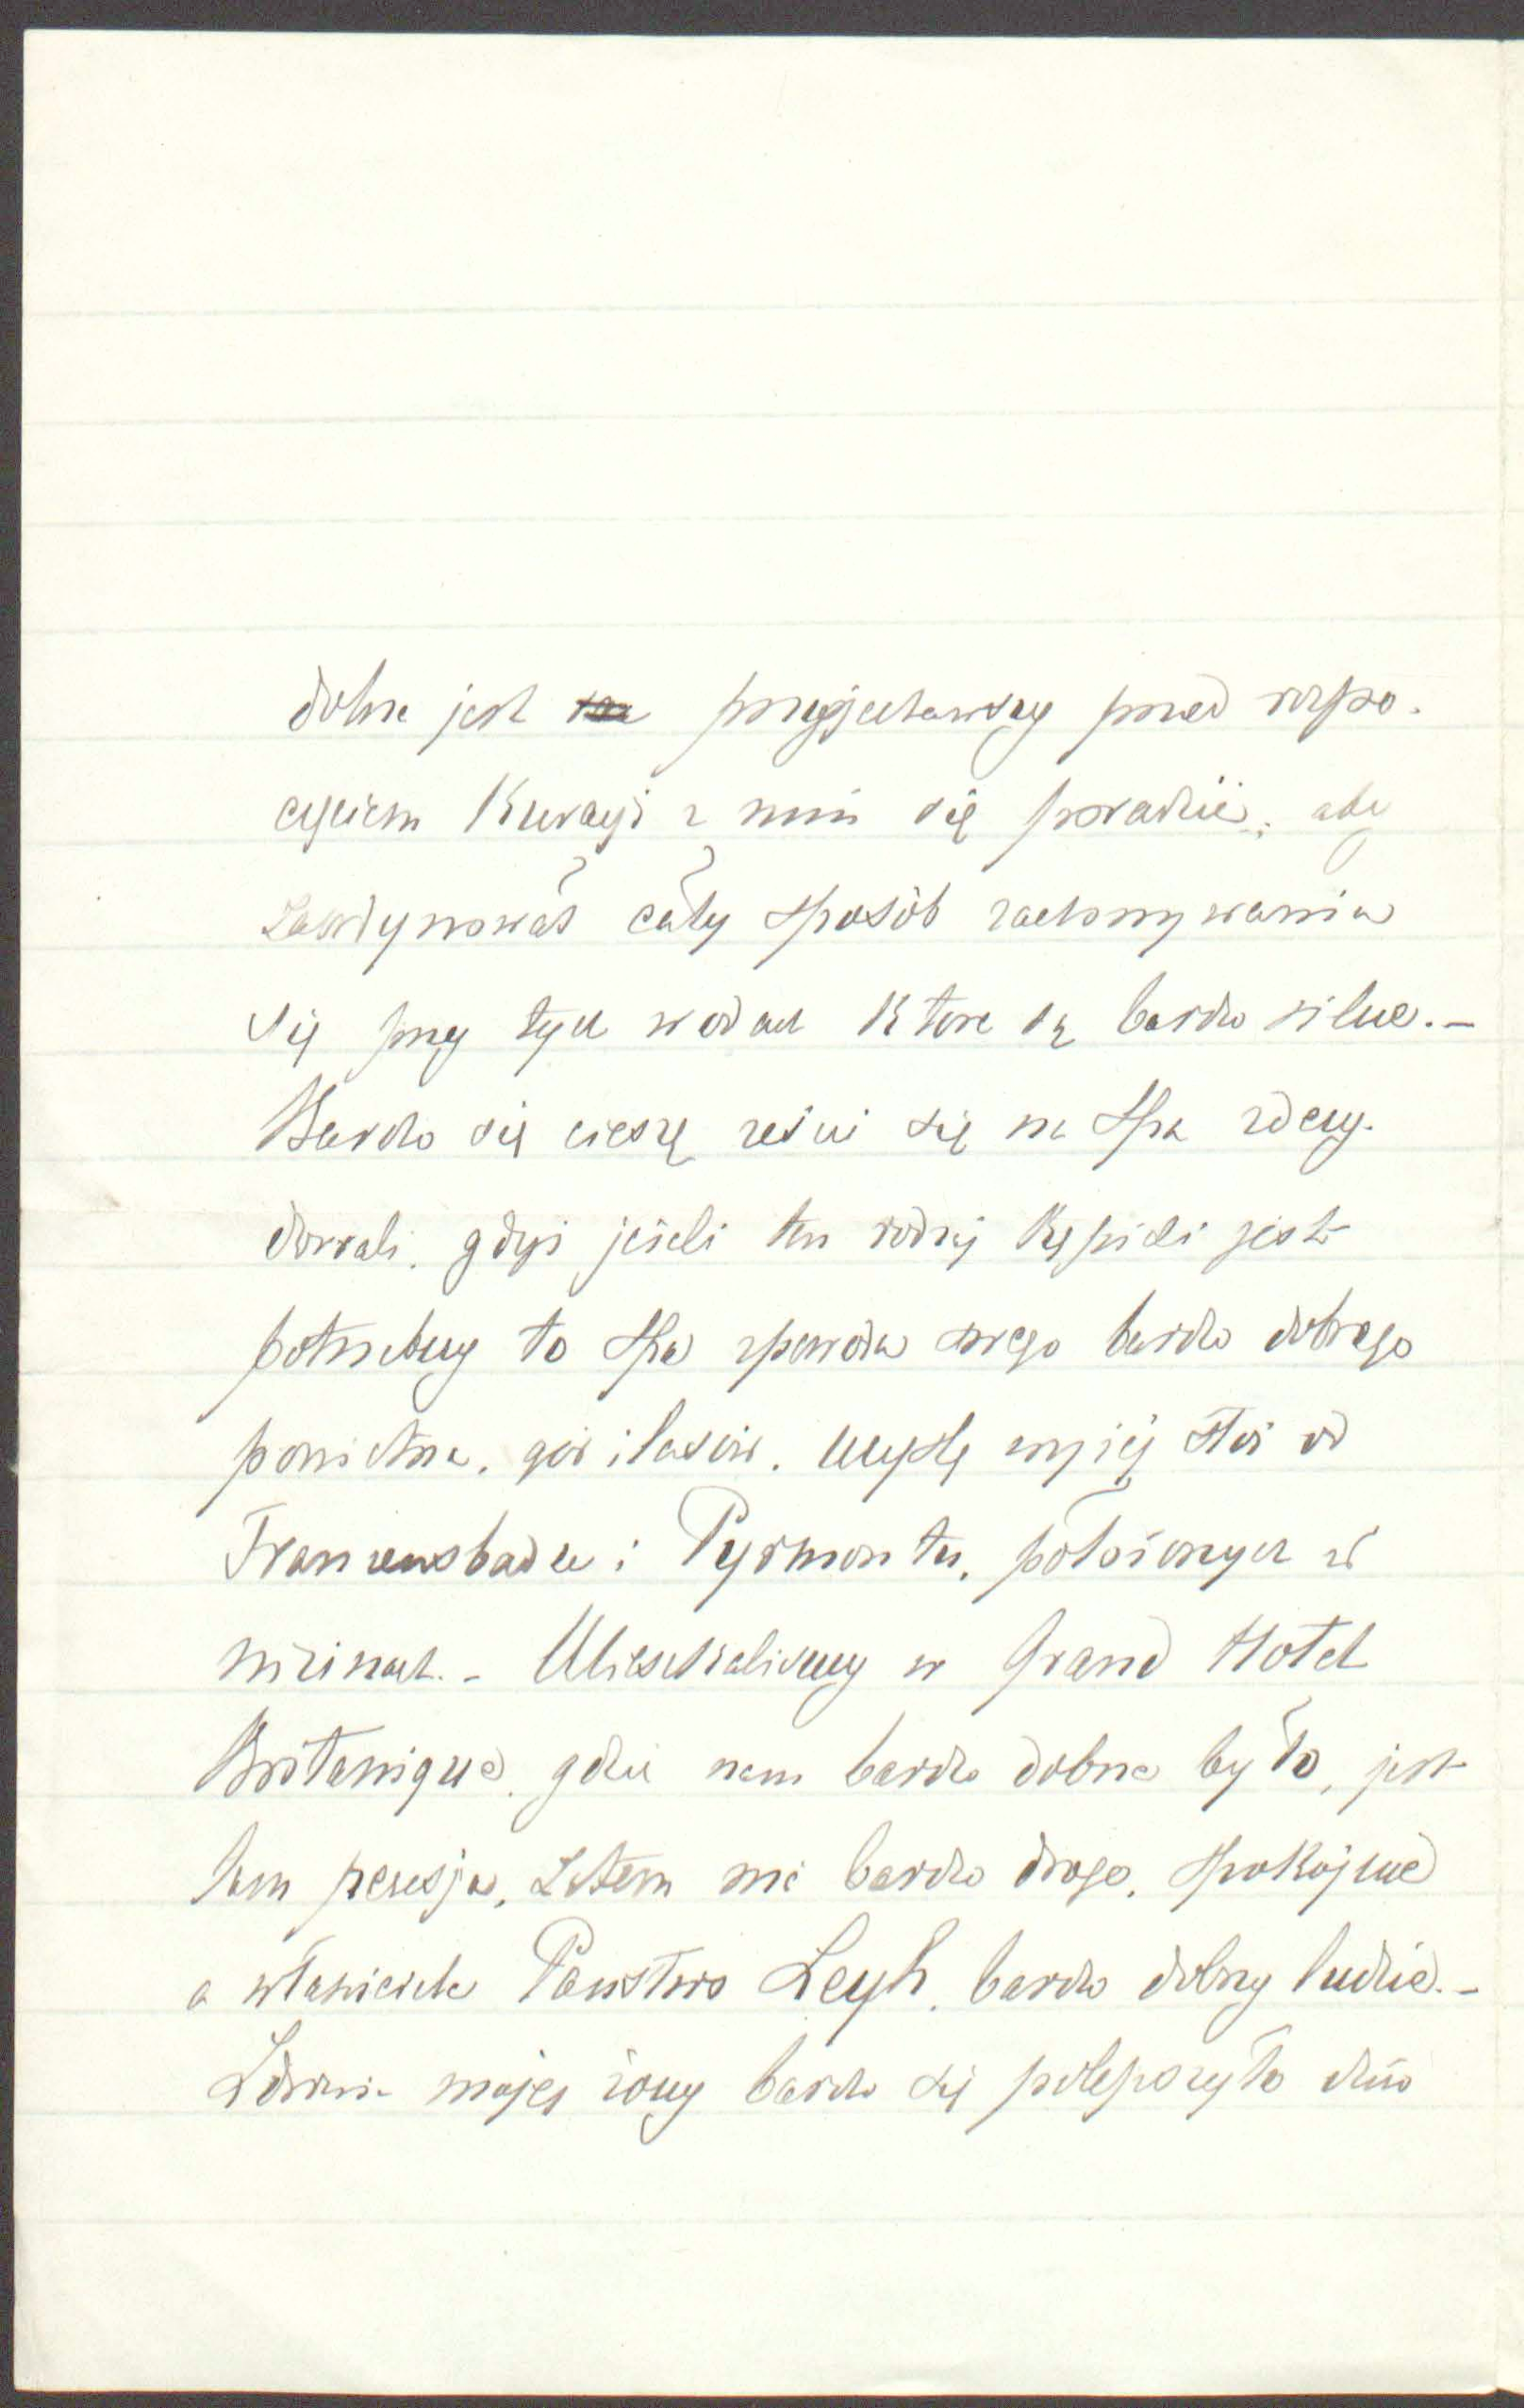 dobrze jest przyjechawszy przed rozpo-
częciem Kuracyi z nim się poradzić, aby
zaordynował cały sposób zachowywania
się przy tych wodach które są bardzo silne. -
Bardzo się cieszę żeście się na Spa zdecy-
dowali, gdyż jeżeli ten rodzaj Kąpieli jest
potrzebny to Spa z powodu swego bardzo dobrego
powietrza, gór i lasów, wyżej stoi od
Franzensbadu i Pyrmontu, położonych w
nizinach. - Mieszkaliśmy w Grand Hotel
Britanique, gdzie nam bardzo dobrze było, jest
tam pensja, zatem nie bardzo drogo, spokojnie
a właściciele Państwo Leyh, bardzo dobrzy ludzie. -
Zdrowie mojej żony bardzo się polepszyło